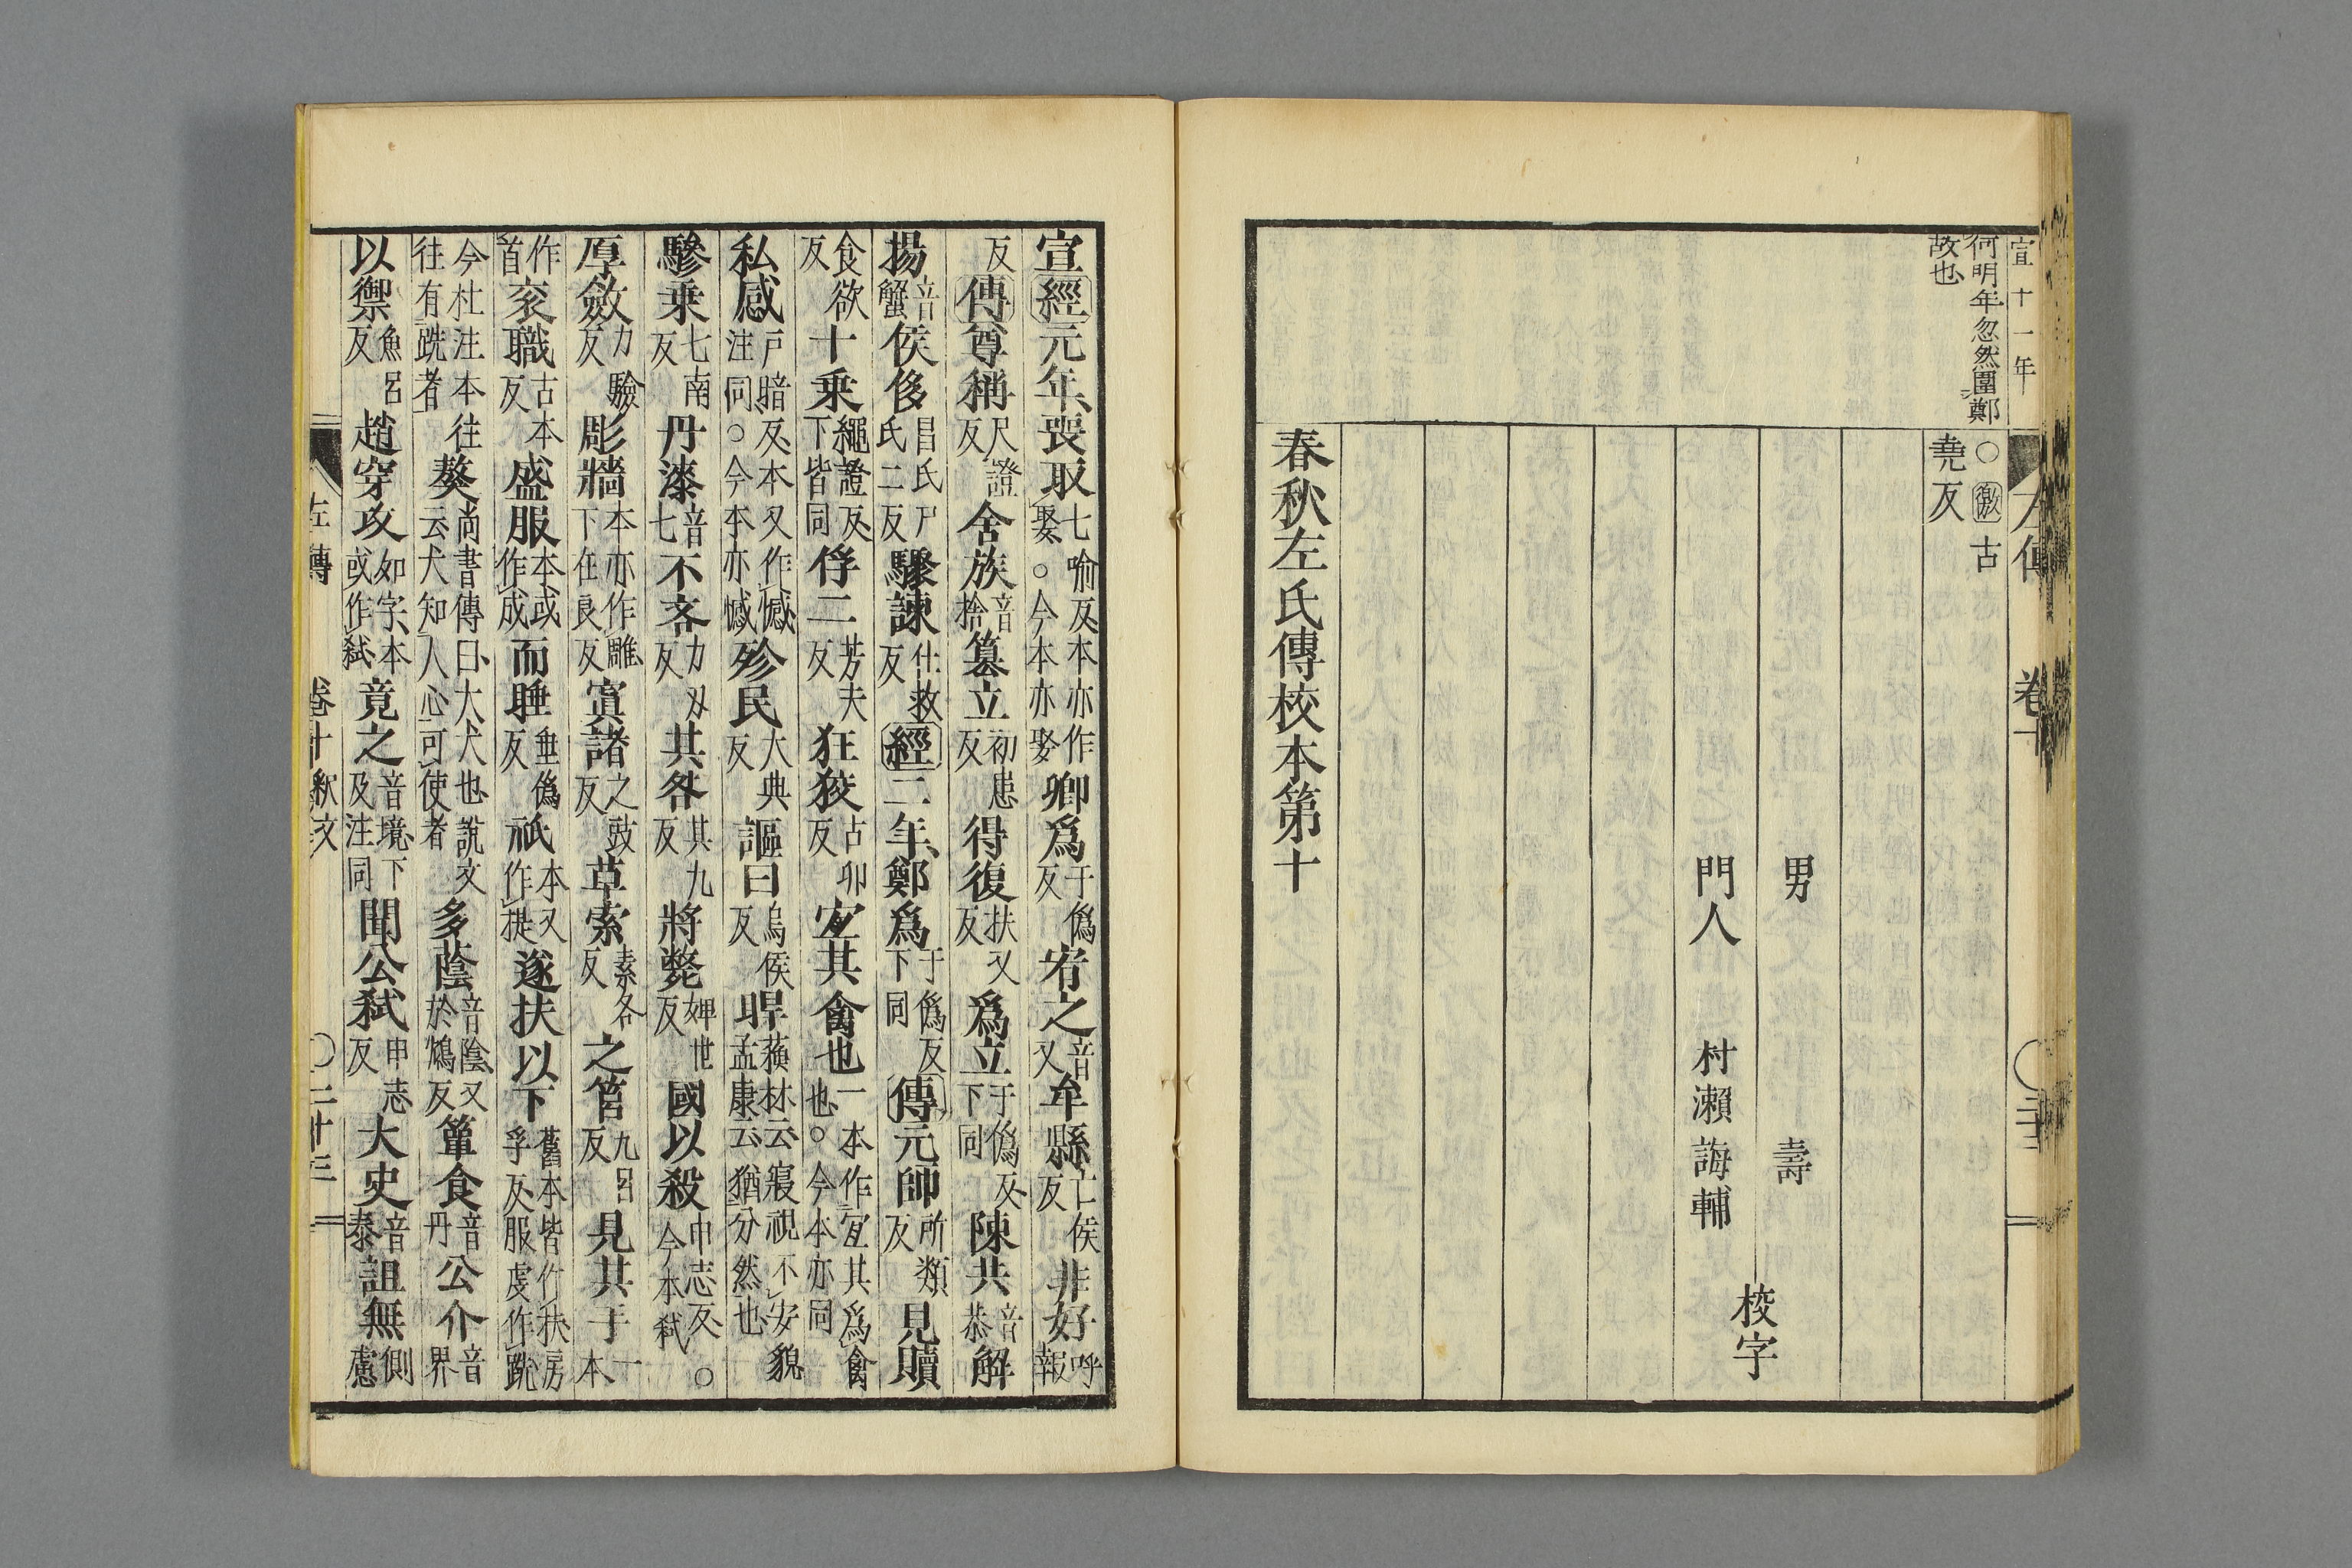 宣十一年
何明年忽然圍鄭
故也
○徼古
堯反
男 壽
門人 村瀬誨輔
校字
春秋左氏傳校本第十
宣經元年、喪取七喻反本亦作娶○今本亦娶卿爲于僞反宥之音又牟縣亡侯反非好呼報
反傳尊稱尺證反舍族音捨篡立初患反得復扶又反爲立于僞反下同陳共音恭解
揚音蟹侯侈昌氏反尸氏二反驟諫仕救反經二年、鄭爲于僞反下同傳元帥所類反見贖
食欲反十乗繩證反下皆同俘二芳夫反狂狡古卯反宐其禽也一本作宐其爲禽也○今本亦同
私感戸暗反本又作憾注同○今本亦憾殄民大典反謳曰烏侯反睅蘇林云寢視不安貌孟康云猶分然也
驂乗七南反丹漆音七不吝力刄反其咎其九反將斃婢世反國以殺申志反○今本弑
厚斂力驗反彫牆本亦作雕下在良反寘諸之豉反草索素各反之筥九呂反見其手一本
作首衮職古本反盛服本或作成而睡垂僞反祇本又作提遂扶以下舊本皆作扶房孚反服虔作跣
今杜注本往往有跣者獒尚書傳曰大犬也說文云犬知人心可使者多蔭音陰又於鴆反簞食音丹公介音界
以禦魚呂反趙穿攻如字本或作弑竟之音境下及注同聞公弑申志反大史音泰詛無側慮
左傳 卷十 釈文 ○二十三